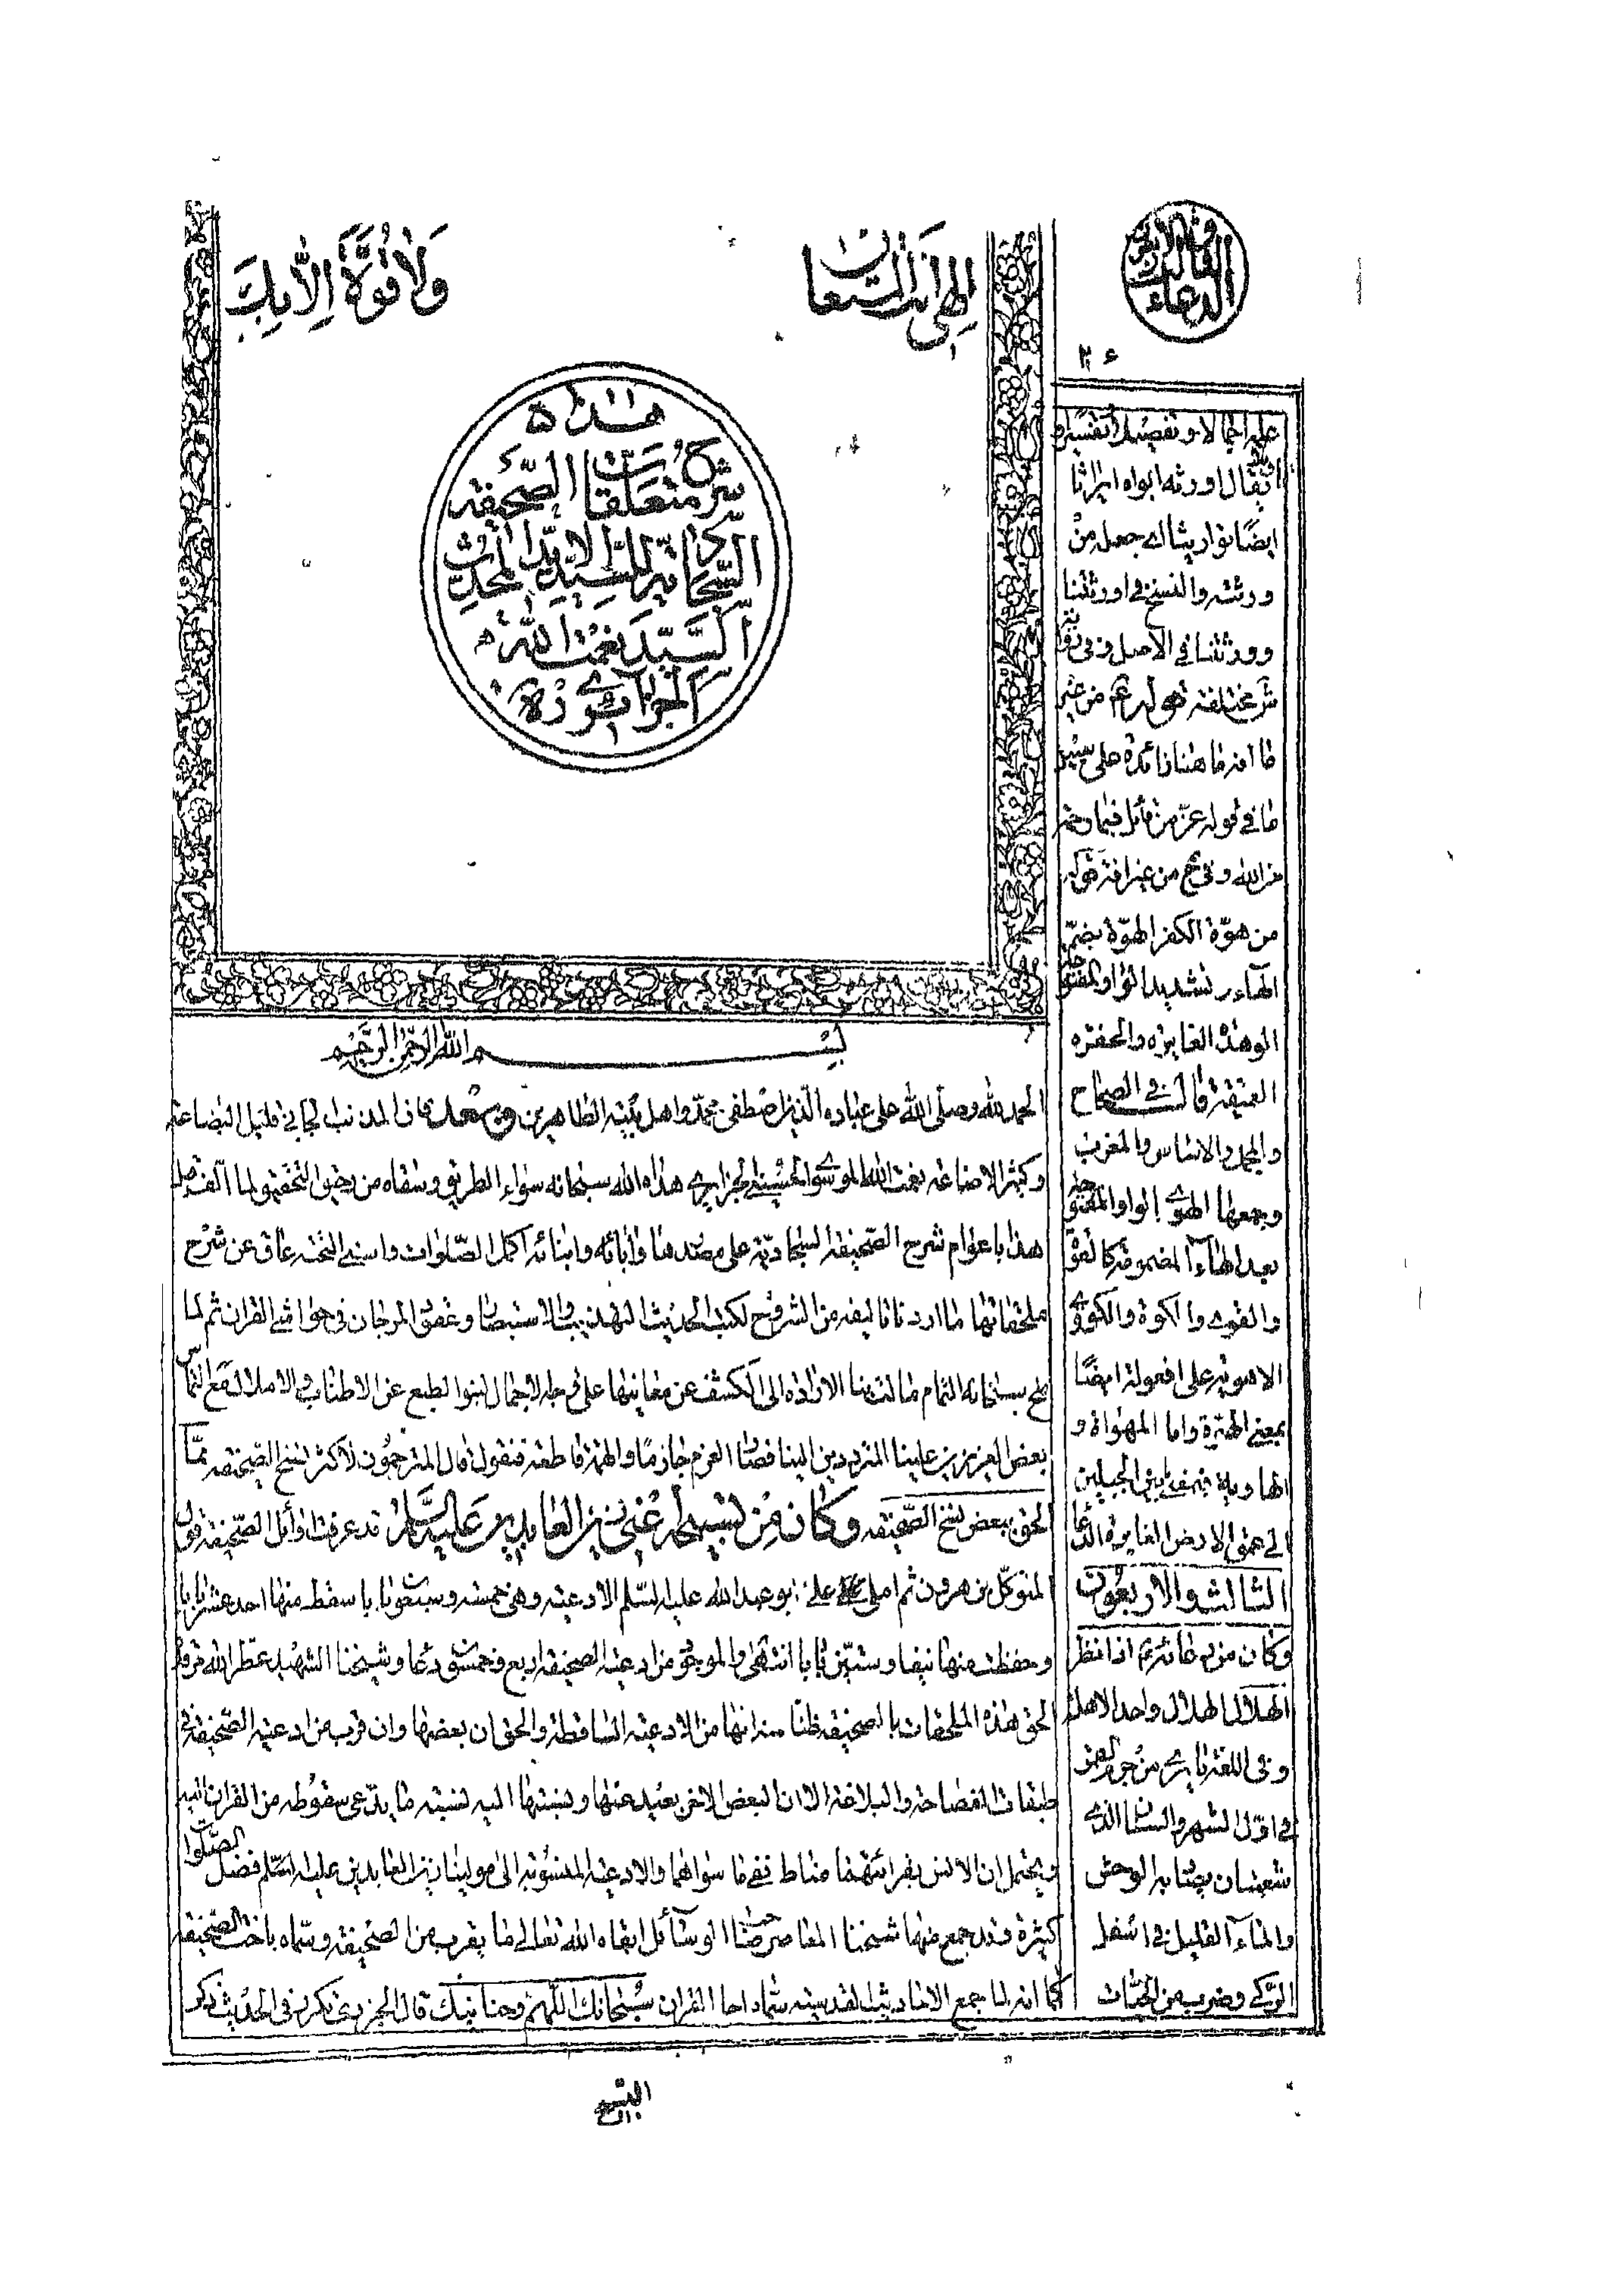 إلهي أنت المستعان
ولا قوة إلا بك
هذه
شرح متعلقات الصحيفة
السجادية للسيد الأيد المحدث
السيد نعمت الله
الجزائري ره
بسم الله الرحمن الرحيم
الحمد لله وصلى الله على عباده الذين اصطفى محمد واهل بيته الطاهرين وبعد فان المذنب الجاني قليل البضاعة
وكثير الاضاعة نعمت الله الموسوي الحسيني الجزايري هداه الله سبحانه سواء الطريق وسقاه من رحيق التحقيق لما الفت
هذا باعوام شرح الصحيفة السجادية على مصدرها وآبائه وابنائه اكمل الصلوات واسنى التحية عاق عن شرح
ملحقاتها ما اردنا تاليفه من الشروح لكتب الحديث التهذيب والاستبصار وعقود المرجان في حواشي القران ثم لما
منح سبحانه التمام مالت بنا الارادة الى الكشف عن معانيها على وجه الاجمال لنبو الطبع عن الاطناب والاملال مع التماس
بعض العزيزين علينا المترددين الينا فصار العزم جازما والهمة قاطعة فنقول قال المترجمون لاكثر نسخ الصحيفة مما
الحق ببعض نسخ الصحيفة وكان من تسبيحه اعني زين العابدين عليه السلام قد عرفت اوايل الصحيفة قول
المتوكل بن هرون ثم املى علي ابو عبد الله عليه السلم الادعية وهي خمسة وسبعون بابا سقط منها احد عشر بابا
وحفظت منها نيفا وستين بابا انتهى والموجود من ادعية الصحيفة اربع وخمسون دعاء وشيخنا الشهيد عطر الله مرقده
الحق هذه الملحقات بالصحيفة ظنا منه انها من الادعية الساقطة والحق ان بعضها وان قرب من ادعية الصحيفة في
طبقات الفصاحة والبلاغة الا ان البعض الاخر بعيد عنها ونسبتها اليه كنسبة ما يدعى سقوطه من القران اليه
ويحتمل ان الانس بقرائتهما مناط نفي ما سواهما والادعية المنسوبة الى مولينا زين العابدين عليه السلم افضل الصلوات
كثيرة وقد جمع منها شيخنا المعاصر صاحب الوسائل ابقاه الله تعالى ما يقرب من الصحيفة وسماه باخت الصحيفة
كما انه لما جمع الاحاديث القدسية سماه اخا القران سبحانك اللهم وحنانيك قال الجزري تكرر في الحديث ذكر
التسبيح
وقال الابقون
الدعاء
عليه اجمالا وتفصيلا وتفسيرا
يقال اورثه ابواه ايراثا
ايضا توريثا اي جعل من
ورثته والنسخ في اورثتنا
وورثتنا في الاصل وفي
ش مختلفة قوله ع من غير
ما انه ما هنا زائدة على سير
ما في قوله عز من قائل فبما رحمة
من الله
من هوة الكفر الهوة بضم
الهاء وتشديد الواو المفتوحة
الوهدة الغايرة والحفرة
العميقة قال في الصحاح
والمجمل والاساس والمغرب
وجمعها الهوى بالواو المفتوحة
بعد الهاء المضمومة كالقوة
والقوى والكوة والكوى
الاهوية على افعولة ايضا
بمعنى الهوة واما المهواة و
الهاوية فهي ما بين الجبلين
الى عمق الارض الغايرة
الثالث والاربعون
وكان من دعائه ع اذا نظر
الهلال الهلال واحد الاهلة
في اول الشهر والسنان الذي
شعبتان يصاد به الوحش
والماء القليل في اسفل
الركي وضرب من الحيات